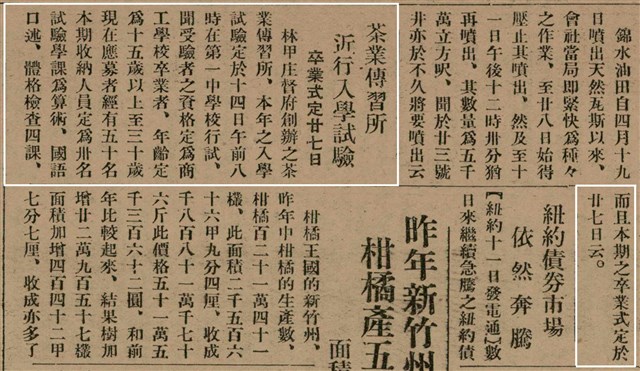 錦水油田自四月十九
日噴出天然瓦斯以來、
會社當局即緊快爲種々
之作業、至廿八日始得
壓止其噴出、然及至十
一日午後十二時卅分猶
再噴出、其數量爲五千
萬立方呎、聞於廿三號
井亦於不久將要噴出云
茶業傳習所
近行入學試驗
卒業式定廿七日
林甲庄督府創辦之茶
業傳習所、本年之入學
試驗定於十四日午前八
時在第一中學校行試、
聞受驗者之資格定爲商
工學校卒業者、年齡定
爲十五歲以上至三十歲
現在應募者經有五十名
本期收納人員定爲卅名
試驗學課爲算術、國語
口述、體格檢查四課、
而且本期之卒業式定於
廿七日云。
紐約債券市場
依然奔騰
【紐約十一日發電通】數
日來繼續急騰之紐約債
昨年新竹州
柑橘產五
面積
柑橘王國的新竹州、
昨年中柑橘的生產數、
柑橘百二十一萬四十一
欉、此面積二千五百六
十六甲九分四厘、收成
千八百八十一萬千七十
六斤此價格五十一萬五
千三百六十二圓、和前
年比較起來、結果樹加
增廿二萬九百五十七欉
面積加增四百四十二甲
七分七厘、收成亦多了